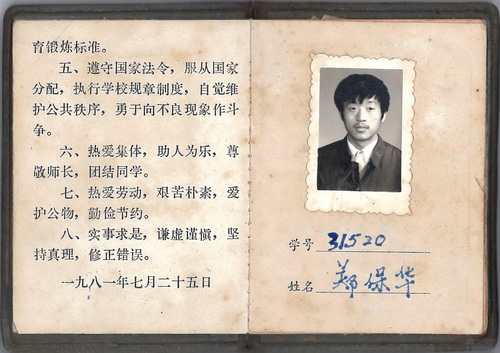 育锻炼标准。
五、遵守国家法令，服从国家
分配，执行学校规章制度，自觉维
护公共秩序，勇于向不良现象作斗
争。
六、热爱集体，助人为乐，尊
敬师长，团结同学。
七、热爱劳动，艰苦朴素，爱
护公物，勤俭节约。
八、实事求是，谦虚谨慎，坚
持真理，修正错误。
一九八一年七月二十五日
学号 31520
姓名 郑保华